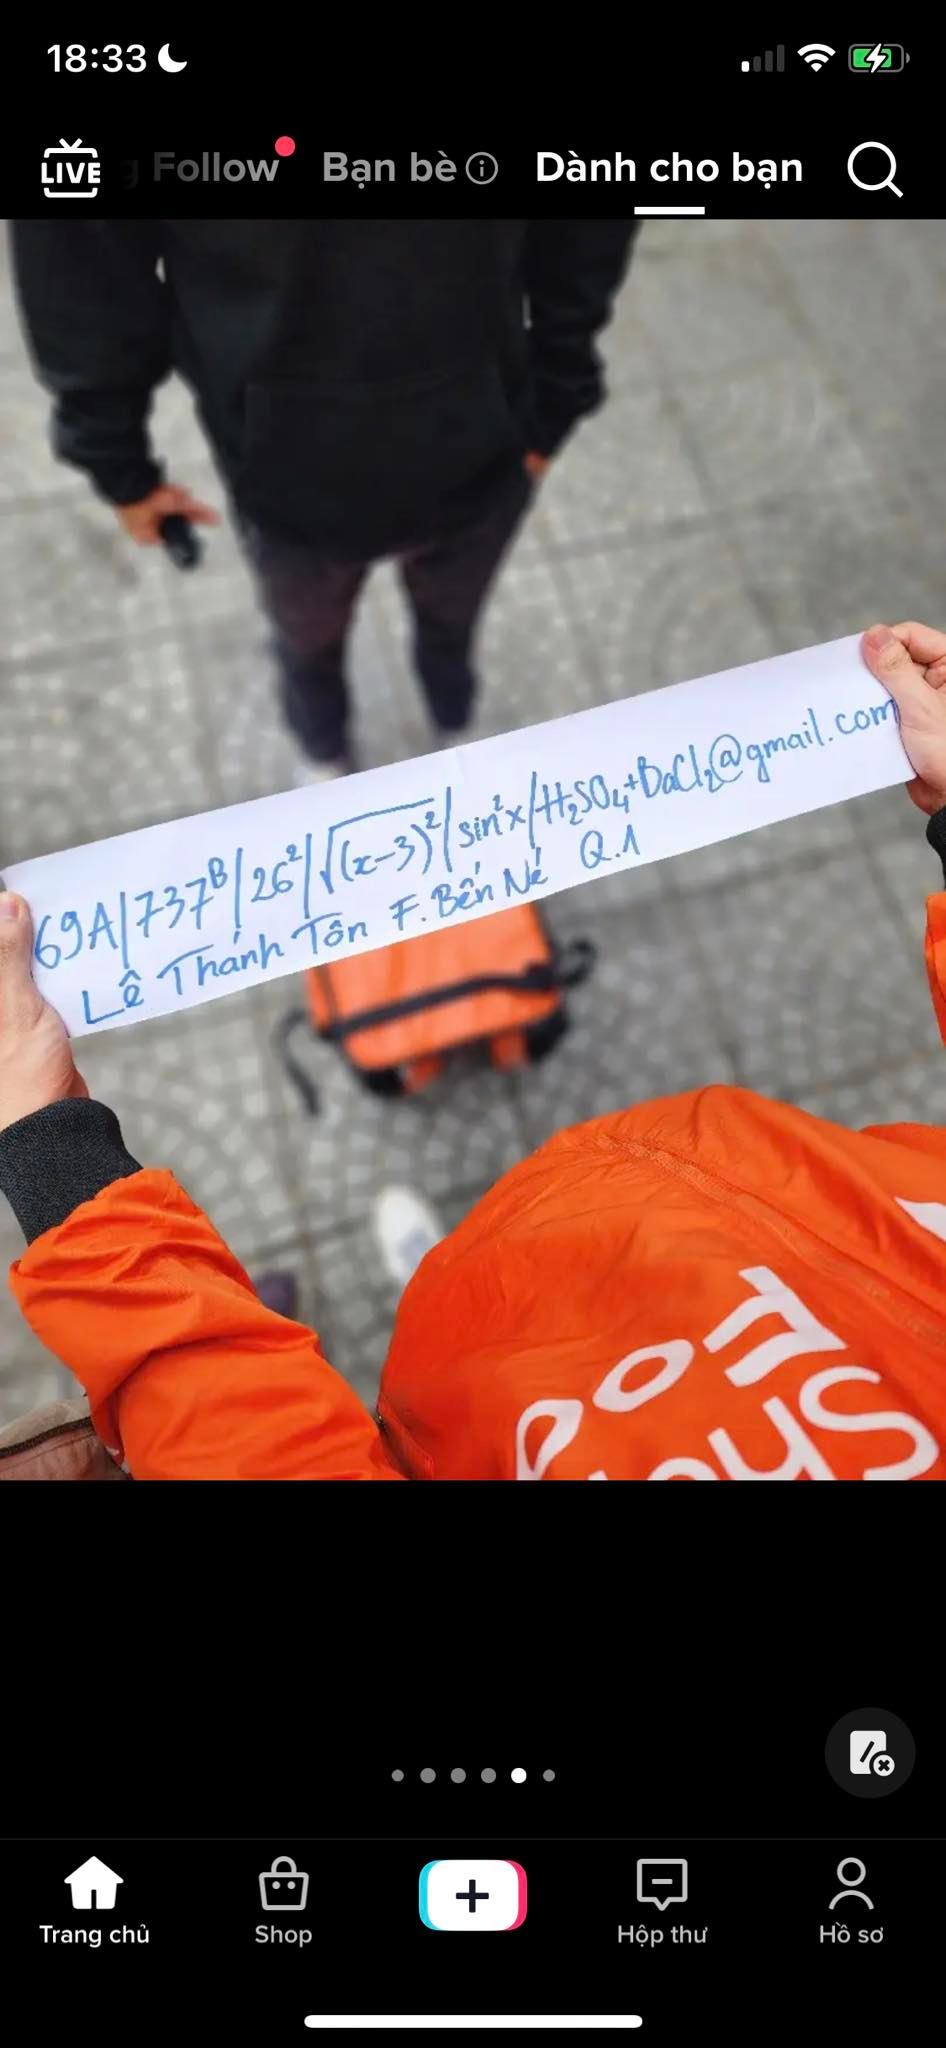 18:33
LIVE Follow Bạn bè Dành cho bạn
69A/737ᴮ/26²/√(x-3)²/sin²x/H₂SO₄+BaCl₂@gmail.com
Lê Thánh Tôn F. Bến Né Q.1
Trang chủ Shop Hộp thư Hồ sơ